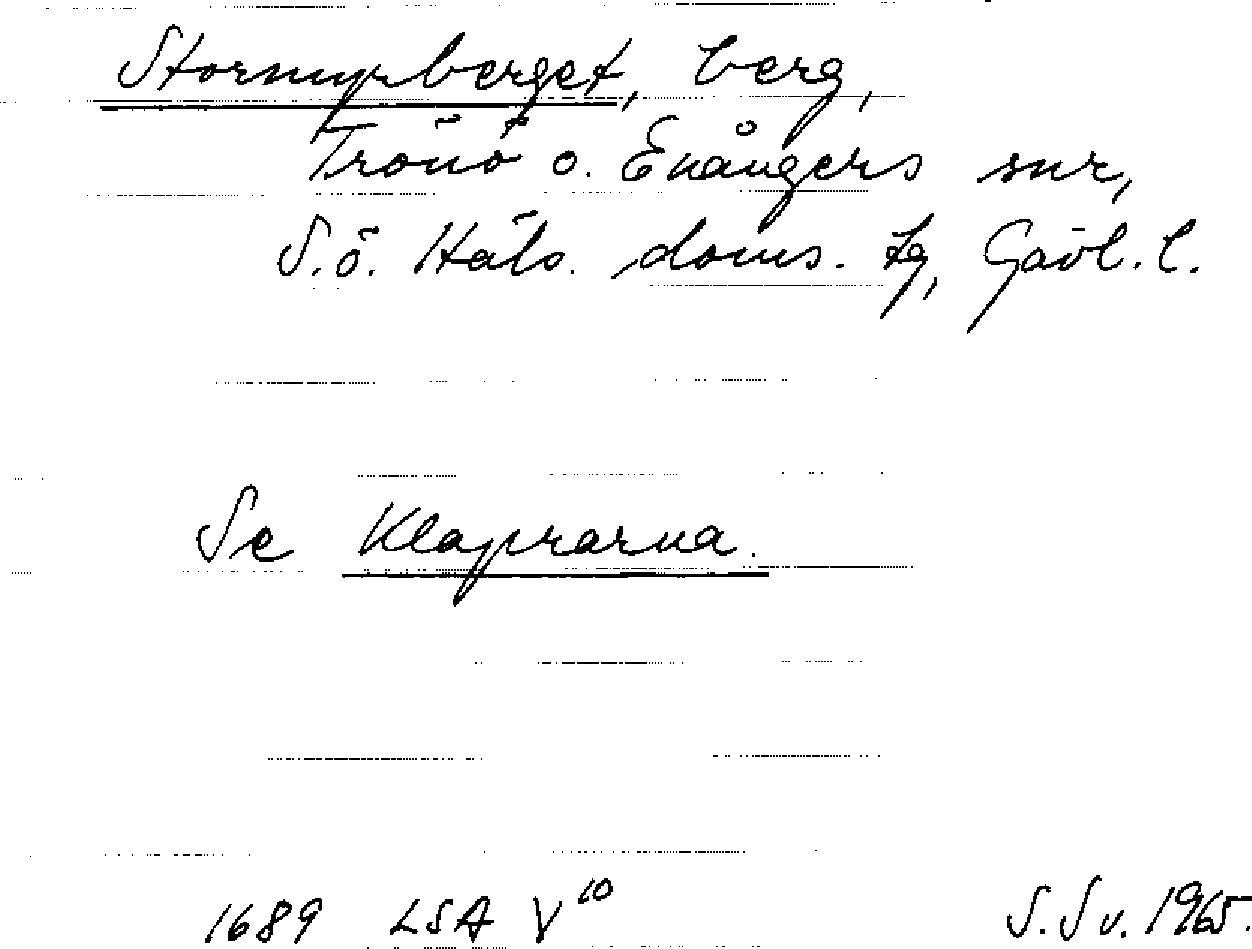 Stormyrberget, berg,
Trönö o. Enångers snr,
S.ö. Häls. doms. tg, Gävl. l.
Se Klapprarna.
1689 LSA V¹⁰ S. Sv. 1965.